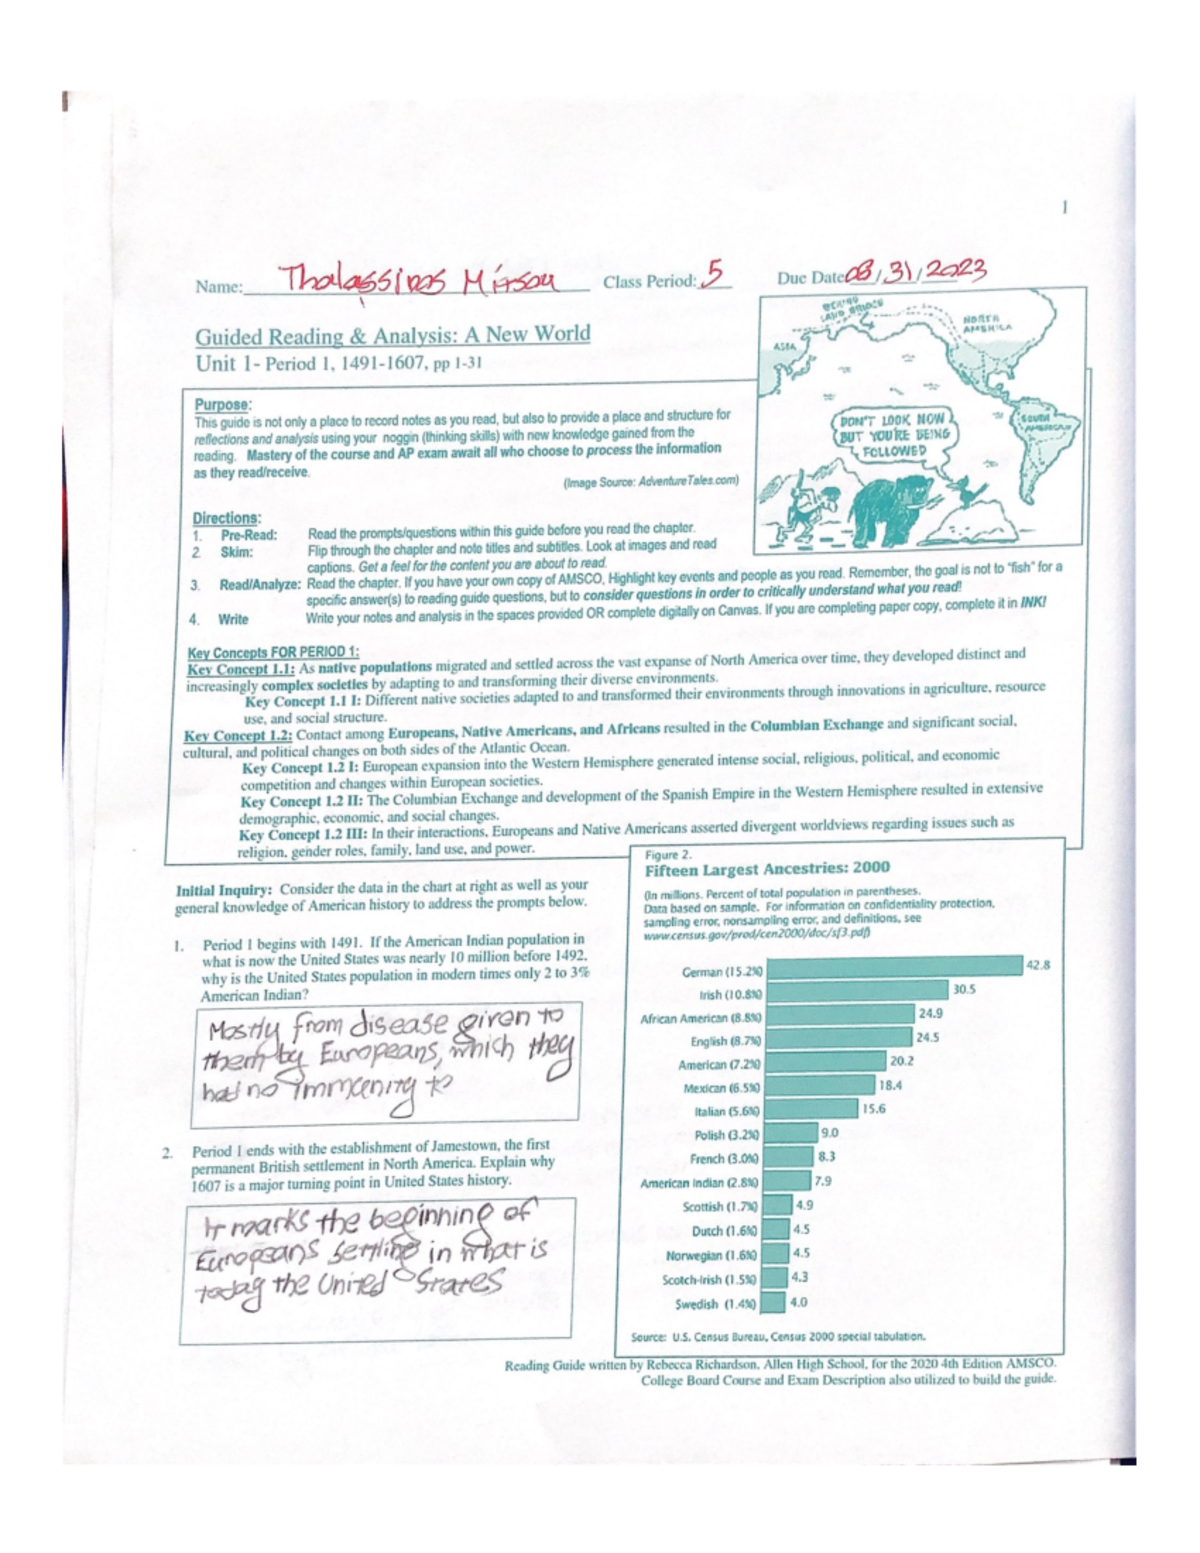 1
Name: Thalassinos Mitsou Class Period: 5 Due Date 08/31/2023
Guided Reading & Analysis: A New World
Unit 1- Period 1, 1491-1607, pp 1-31
BERING
LAND BRIDGE
NORTH
AMERICA
ASIA
SOUTH
AMERICA
DON'T LOOK NOW
BUT YOU'RE BEING
FOLLOWED
Purpose:
This guide is not only a place to record notes as you read, but also to provide a place and structure for
reflections and analysis using your noggin (thinking skills) with new knowledge gained from the
reading. Mastery of the course and AP exam await all who choose to process the information
as they read/receive.
(Image Source: AdventureTales.com)
Directions:
1. Pre-Read: Read the prompts/questions within this guide before you read the chapter.
2. Skim: Flip through the chapter and note titles and subtitles. Look at images and read
captions. Get a feel for the content you are about to read.
3. Read/Analyze: Read the chapter. If you have your own copy of AMSCO, Highlight key events and people as you read. Remember, the goal is not to "fish" for a
specific answer(s) to reading guide questions, but to consider questions in order to critically understand what you read!
4. Write Write your notes and analysis in the spaces provided OR complete digitally on Canvas. If you are completing paper copy, complete it in INK!
Key Concepts FOR PERIOD 1:
Key Concept 1.1: As native populations migrated and settled across the vast expanse of North America over time, they developed distinct and
increasingly complex societies by adapting to and transforming their diverse environments.
Key Concept 1.1 I: Different native societies adapted to and transformed their environments through innovations in agriculture, resource
use, and social structure.
Key Concept 1.2: Contact among Europeans, Native Americans, and Africans resulted in the Columbian Exchange and significant social,
cultural, and political changes on both sides of the Atlantic Ocean.
Key Concept 1.2 I: European expansion into the Western Hemisphere generated intense social, religious, political, and economic
competition and changes within European societies.
Key Concept 1.2 II: The Columbian Exchange and development of the Spanish Empire in the Western Hemisphere resulted in extensive
demographic, economic, and social changes.
Key Concept 1.2 III: In their interactions, Europeans and Native Americans asserted divergent worldviews regarding issues such as
religion, gender roles, family, land use, and power.
Initial Inquiry: Consider the data in the chart at right as well as your
general knowledge of American history to address the prompts below.
1. Period 1 begins with 1491. If the American Indian population in
what is now the United States was nearly 10 million before 1492,
why is the United States population in modern times only 2 to 3%
American Indian?
Mostly from disease given to
them by Europeans, which they
had no immunity to
2. Period 1 ends with the establishment of Jamestown, the first
permanent British settlement in North America. Explain why
1607 is a major turning point in United States history.
It marks the beginning of
Europeans settling in what is
today the United States
Figure 2.
Fifteen Largest Ancestries: 2000
(In millions. Percent of total population in parentheses.
Data based on sample. For information on confidentiality protection,
sampling error, nonsampling error, and definitions, see
www.census.gov/prod/cen2000/doc/sf3.pdf)
German (15.2%) 42.8
Irish (10.8%) 30.5
African American (8.8%) 24.9
English (8.7%) 24.5
American (7.2%) 20.2
Mexican (6.5%) 18.4
Italian (5.6%) 15.6
Polish (3.2%) 9.0
French (3.0%) 8.3
American Indian (2.8%) 7.9
Scottish (1.7%) 4.9
Dutch (1.6%) 4.5
Norwegian (1.6%) 4.5
Scotch-Irish (1.5%) 4.3
Swedish (1.4%) 4.0
Source: U.S. Census Bureau, Census 2000 special tabulation.
Reading Guide written by Rebecca Richardson, Allen High School, for the 2020 4th Edition AMSCO.
College Board Course and Exam Description also utilized to build the guide.